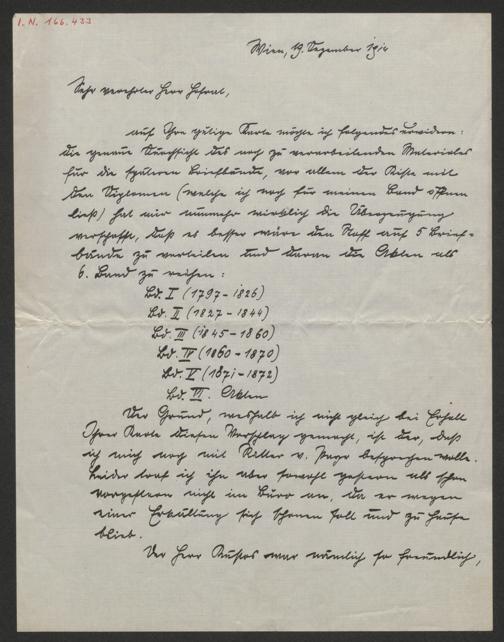 I.N. 166.433
Wien, 19. Dezember 191
Sehr verehrter Herr Hofrat,
auf Ihre gütige Karte möchte ich folgendes erwidern:
die genaue Durchsicht des noch zu verarbeitenden Materiales
für die späteren Briefbände, vor allem der Kiste mit
den Diplomen (welche ich noch für meinen Band offen
ließ) hat mir nunmehr wirklich die Überzeugung
verschafft, daß es besser wäre den Stoff auf 5 Brief-
bände zu verteilen und daran die Akten als
6. Band zu reihen:
Bd. I (1797-1826)
Bd. II (1827-1844)
Bd. III (1845-1860)
Bd. IV (1860-1870)
Bd. V (1871-1872)
Bd. VI. Akten
Der Grund, weshalb ich nicht gleich bei Erhalt
Ihrer Karte diesen Vorschlag gemacht, ist der, daß
ich mich noch mit Ritter v. Payer besprechen wollte.
Leider traf ich ihn aber sowohl gestern als schon
vorgestern nicht im Büro an, da er wegen
einer Erkältung sich schonen soll und zu Hause
blieb.
Der Herr Kustos war nämlich so freundlich,